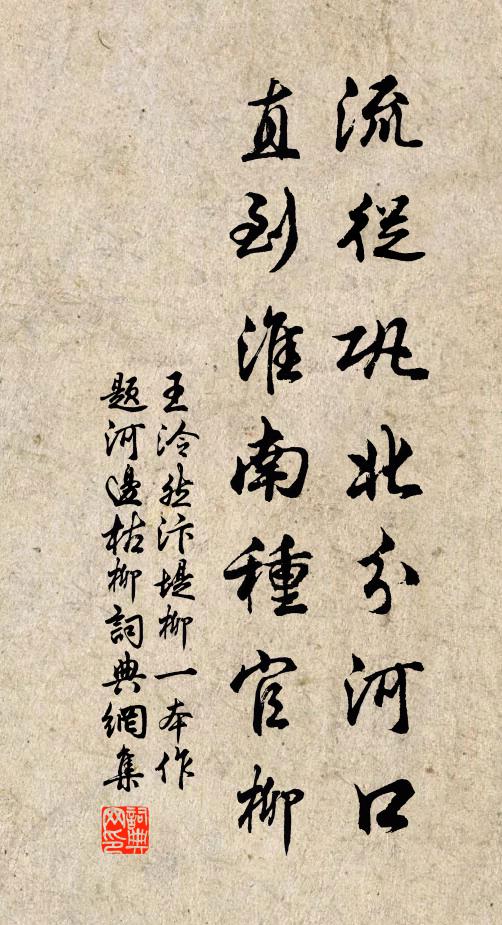 流從巩北分河口
直到淮南種官柳
王泠然汴堤柳一本作
題河邊枯柳詞典網集
詞典網印